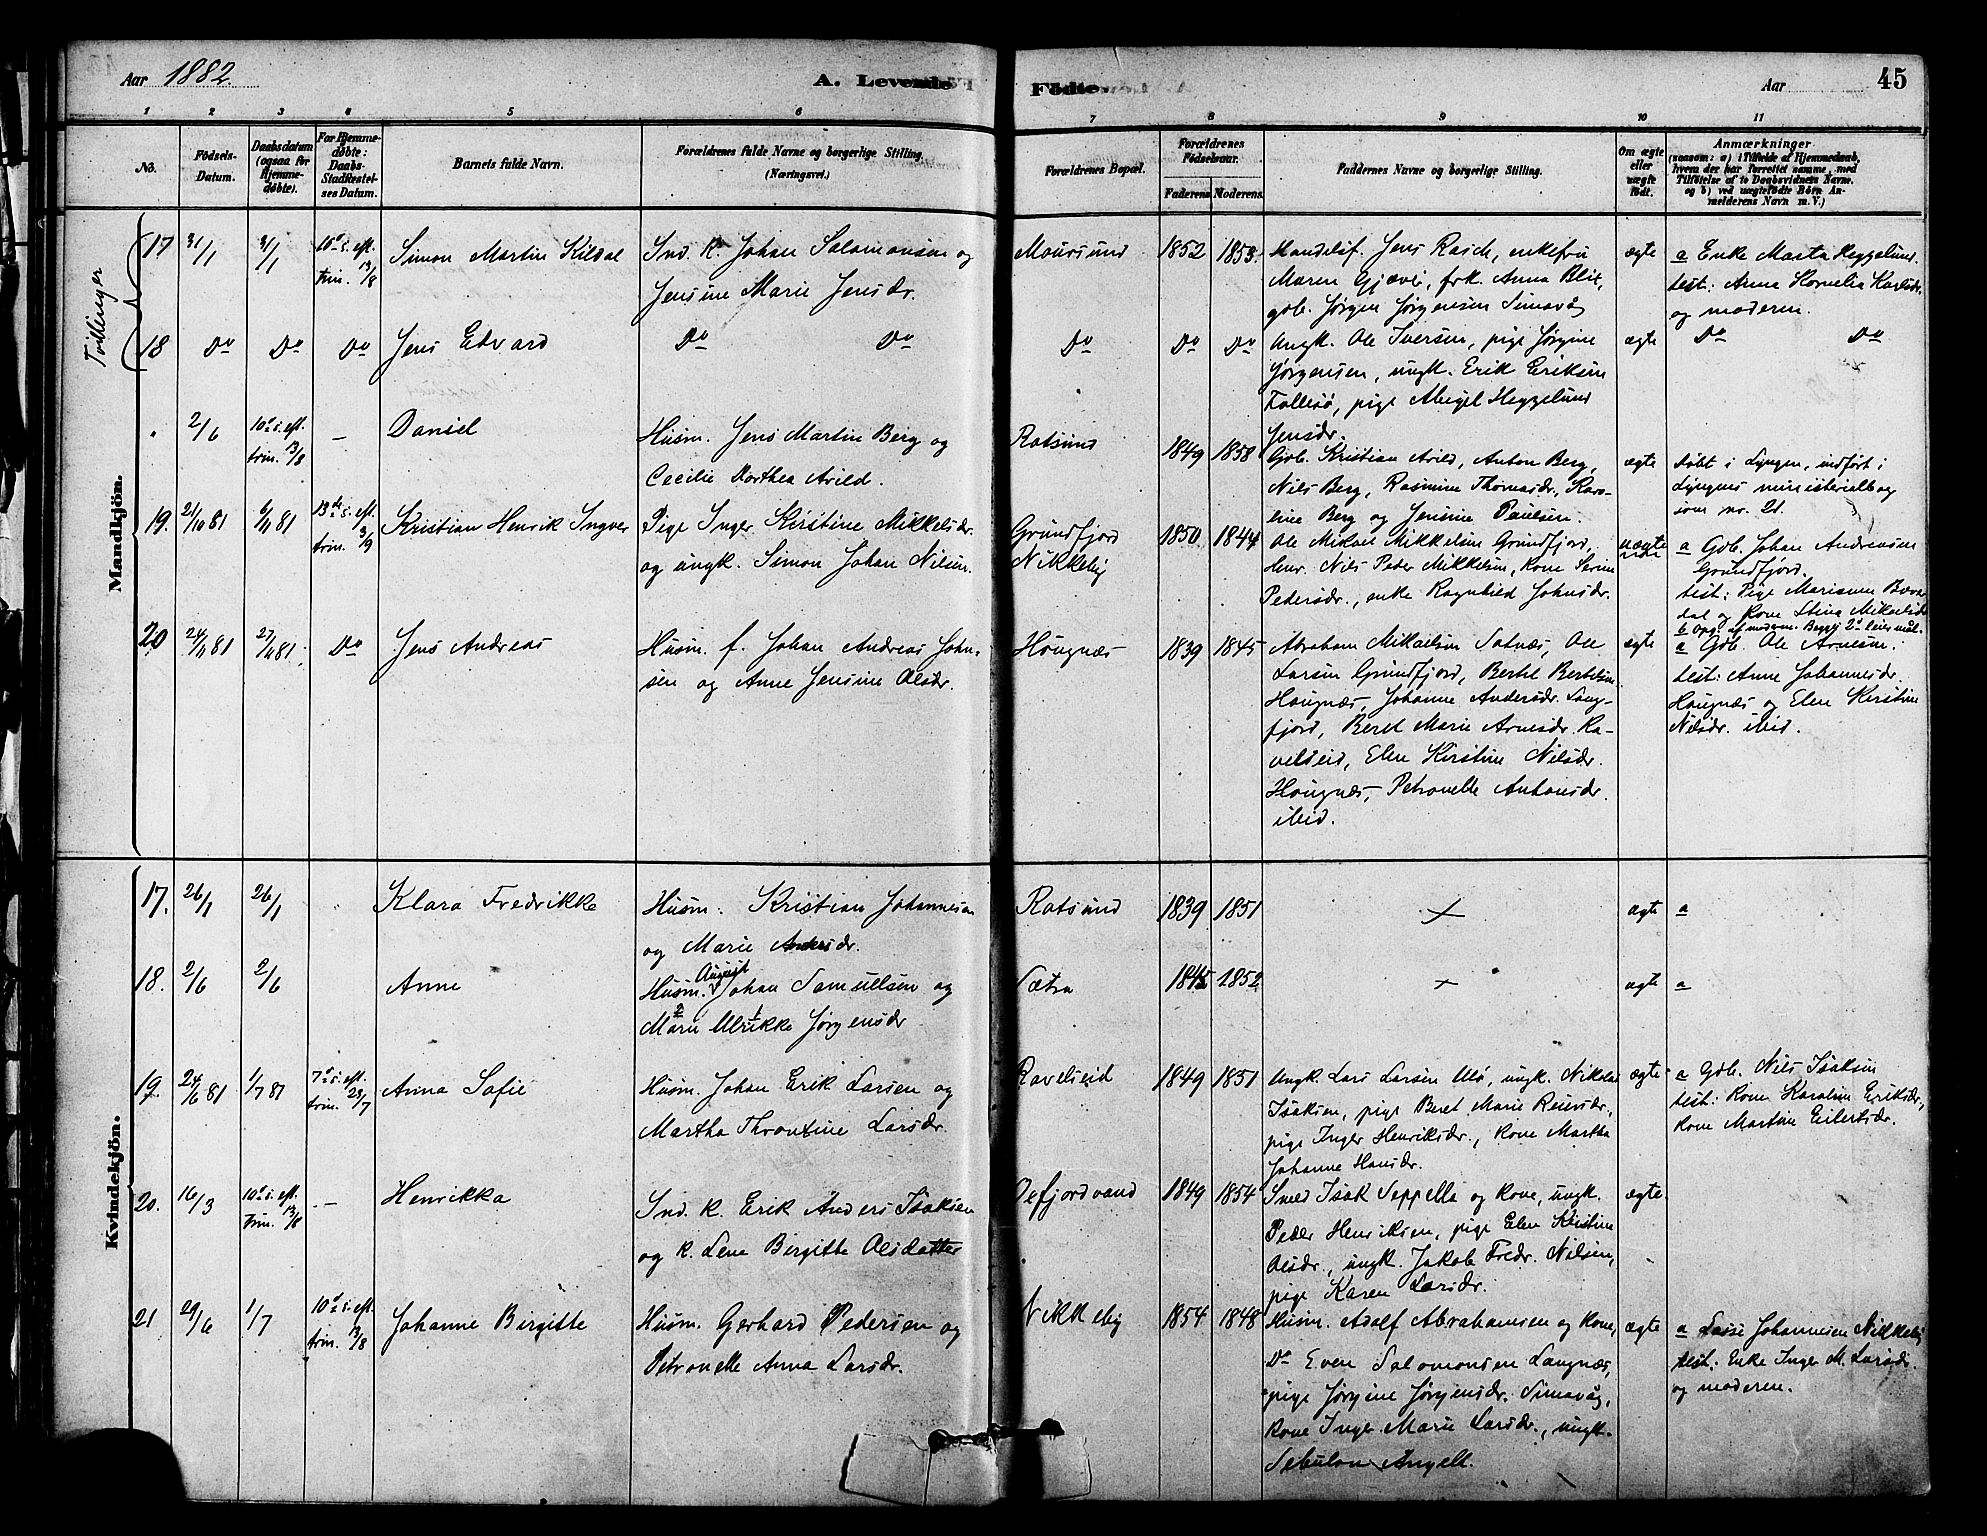 Aar 1882.
A. Levende
Fødte.
Aar
45
1 2 3 4 5 6 7 8 9 10 11
No.
Fødsels-
Datum.
Daabsdatum
(ogsaa for
Hjemme-
døbte).
For Hjemme-
døbte:
Daabs-
Stadfæstel-
ses Datum.
Barnets fulde Navn.
Forældrenes fulde Navne og borgerlige Stilling.
(Næringsvei.)
Forældrenes Bopæl.
Forældrenes
Fødselsaar.
Faderens Moderens
Faddernes Navne og borgerlige Stilling.
Om ægte
eller
uægte
født.
Anmærkninger
(saasom: a) i Tilfælde af Hjemmedaab,
hvem der har forrettet samme, med
Tilføielse af to Daabsvidners Navne,
og b) ved uægtefødte Børn An-
melderens Navn m. V.)
Tvillinger
Mandkjön.
17 31/1 31/1 10de s. eft.
trin. 13/8
Simon Martin Kildal
Ind. K. Johan Salamonsen og
Jensine Marie Jensdr.
Maursund 1852 1853.
Handelsf. Jens Rasch, enkefru
Maren Gjæver, frk. Anna Blix,
gdb. Jørgen Jørgensen Simavåg
ægte
a Enke Marta Heggelund.
test: Anna Kornelia Karlsdr.
og moderen.
18 Do Do Do Jens Edvard Do Do
Do Do Do
Ungk. Ole Iversen, pige Jørgine
Jørgensen, ungk. Erik Eriksen
Follesø, pige Abigel Heggelund
Jensdr.
ægte Do Do
" 2/6 10de s. eft.
trin. 13/8
– Daniel
Husm. Jens Martin Berg og
Cecilie Dorthea Arild.
Rotsund 1849 1858
Gdb. Kristian Arild, Anton Berg,
Nils Berg, Rasmine Thomasdr, Karo-
line Berg og Jensine Paulsen.
ægte
døbt i Lyngen, indført i
Lyngens ministerialbog
som no. 21.
19. 21/10 81 6/11 81 13de s. eft.
trin. 3/9
Kristian Henrik Ingver
Pige Inger Kirstine Mikkelsdr.
og ungk. Simon Johan Nilsen.
Grundfjord
Nikkeby
1850 1844
Ole Mikael Mikkelsen Grundfjord,
Nils Peder Mikkelsen, kone
Pedersdr., enke Ragnhild Johnsdr.
uægte
a Gdb. Johan Andreasen
Grundfjord.
test: Pige Marianne
dal og kone Stina Mikaelsdr
b Opg. af moderen. Begges 2det leiermål.
20 24/11 81 27/11 81 Do Jens Andreas
Husm. f. Johan Andreas John-
sen og Anne Jensine Olsdr.
Haugnæs 1839 1845
Abraham Mikaelsen Sotnæs, Ole
Larsen Grundfjord, Bertel Bertelsen
Haugnæs, Johanne Andersdr. Lang-
fjord, Beret Marie Arnesdr. Ra-
velseid, Elen Kirstine Nilsdr.
Haugnæs, Petronelle Antonsdr.
ibid.
ægte
a Gdb. Ole Arnesen.
test: Anne Johannesdr.
Haugnæs og Elen Kirstine
Nilsdr. ibid.
Kvindekjön.
17. 26/1 26/1 " Klara Fredrikke
Husm. Kristian Johannesen
og Marie Andersdr.
Rotsund 1839 1851 + ægte a
18. 2/6 2/6 Anne
August
Husm. Johan Samuelsen og
Marie Ulrikke Jørgensdr
Sætra 1845 1852 + ægte a
19. 24/6 81 1/7 81 7de s. eft.
trin. 23/7
Anna Sofie
Husm. Johan Erik Larsen og
Martha Throntine Larsdr.
Ravelseid 1849 1851
Ungk. Lars Larsen Ulø, ungk. Nikolai
Isaksen, pige Beret Marie Reiersdr.,
pige Inger Henriksdr., kone Martha
Johanne Hansdr.
ægte
a Gdb. Nils Isaksen
test: Kone Karoline Eriksdr.,
kone Martine Eilertsdr.
20. 16/3 10de s. eft.
trin. 13/8
– Henrikka
Ind. k. Erik Anders Isaksen
og k. Lene Birgitte Olsdatter
Oxfjordvand 1849 1854
Smed Isak Seppella og kone, ungk.
Peder Henriksen, pige Elen Kristine
Olsdr., ungk. Jakob Fredr. Nilsen,
pige Karen Larsdr.
ægte
21 29/6 1/7 10de s. eft.
trin. 13/8
Johanne Birgitte
Husm. Gerhard Pedersen og
Petronelle Anna Larsdr.
Nikkeby 1854 1848
Husm. Adolf Abrahamsen og kone,
Do Even Salomonsen Langnæs,
pige Jørgine Jørgensdr. Simavåg,
kone Inger Marie Larsdr., ungk.
Sebulon Angell.
ægte
a Lasse Johannesen Nikkeby
test: Enke Inger M. Larsdr.
og moderen.